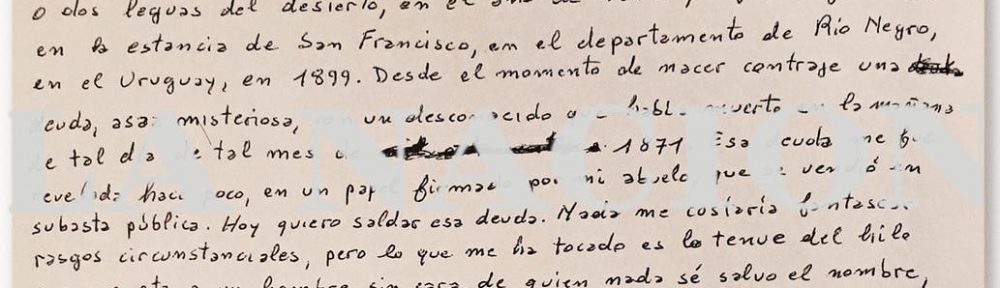 o dos leguas del desierto, en el
en la estancia de San Francisco, en el departamento de Río Negro,
en el Uruguay, en 1899. Desde el momento de nacer contraje una
deuda, asaz misteriosa, con un desconocido que había muerto en la mañana
de tal día de tal mes de 1871. Esa deuda me fue
revelada hace poco, en un papel firmado por mi abuelo, que se vendió en
subasta pública. Hoy quiero saldar esa deuda. Nada me costaría
rasgos circunstanciales, pero lo que me ha tocado es lo tenue del hilo
a un hombre sin cara de quien nada sé salvo el nombre,
LA NACION